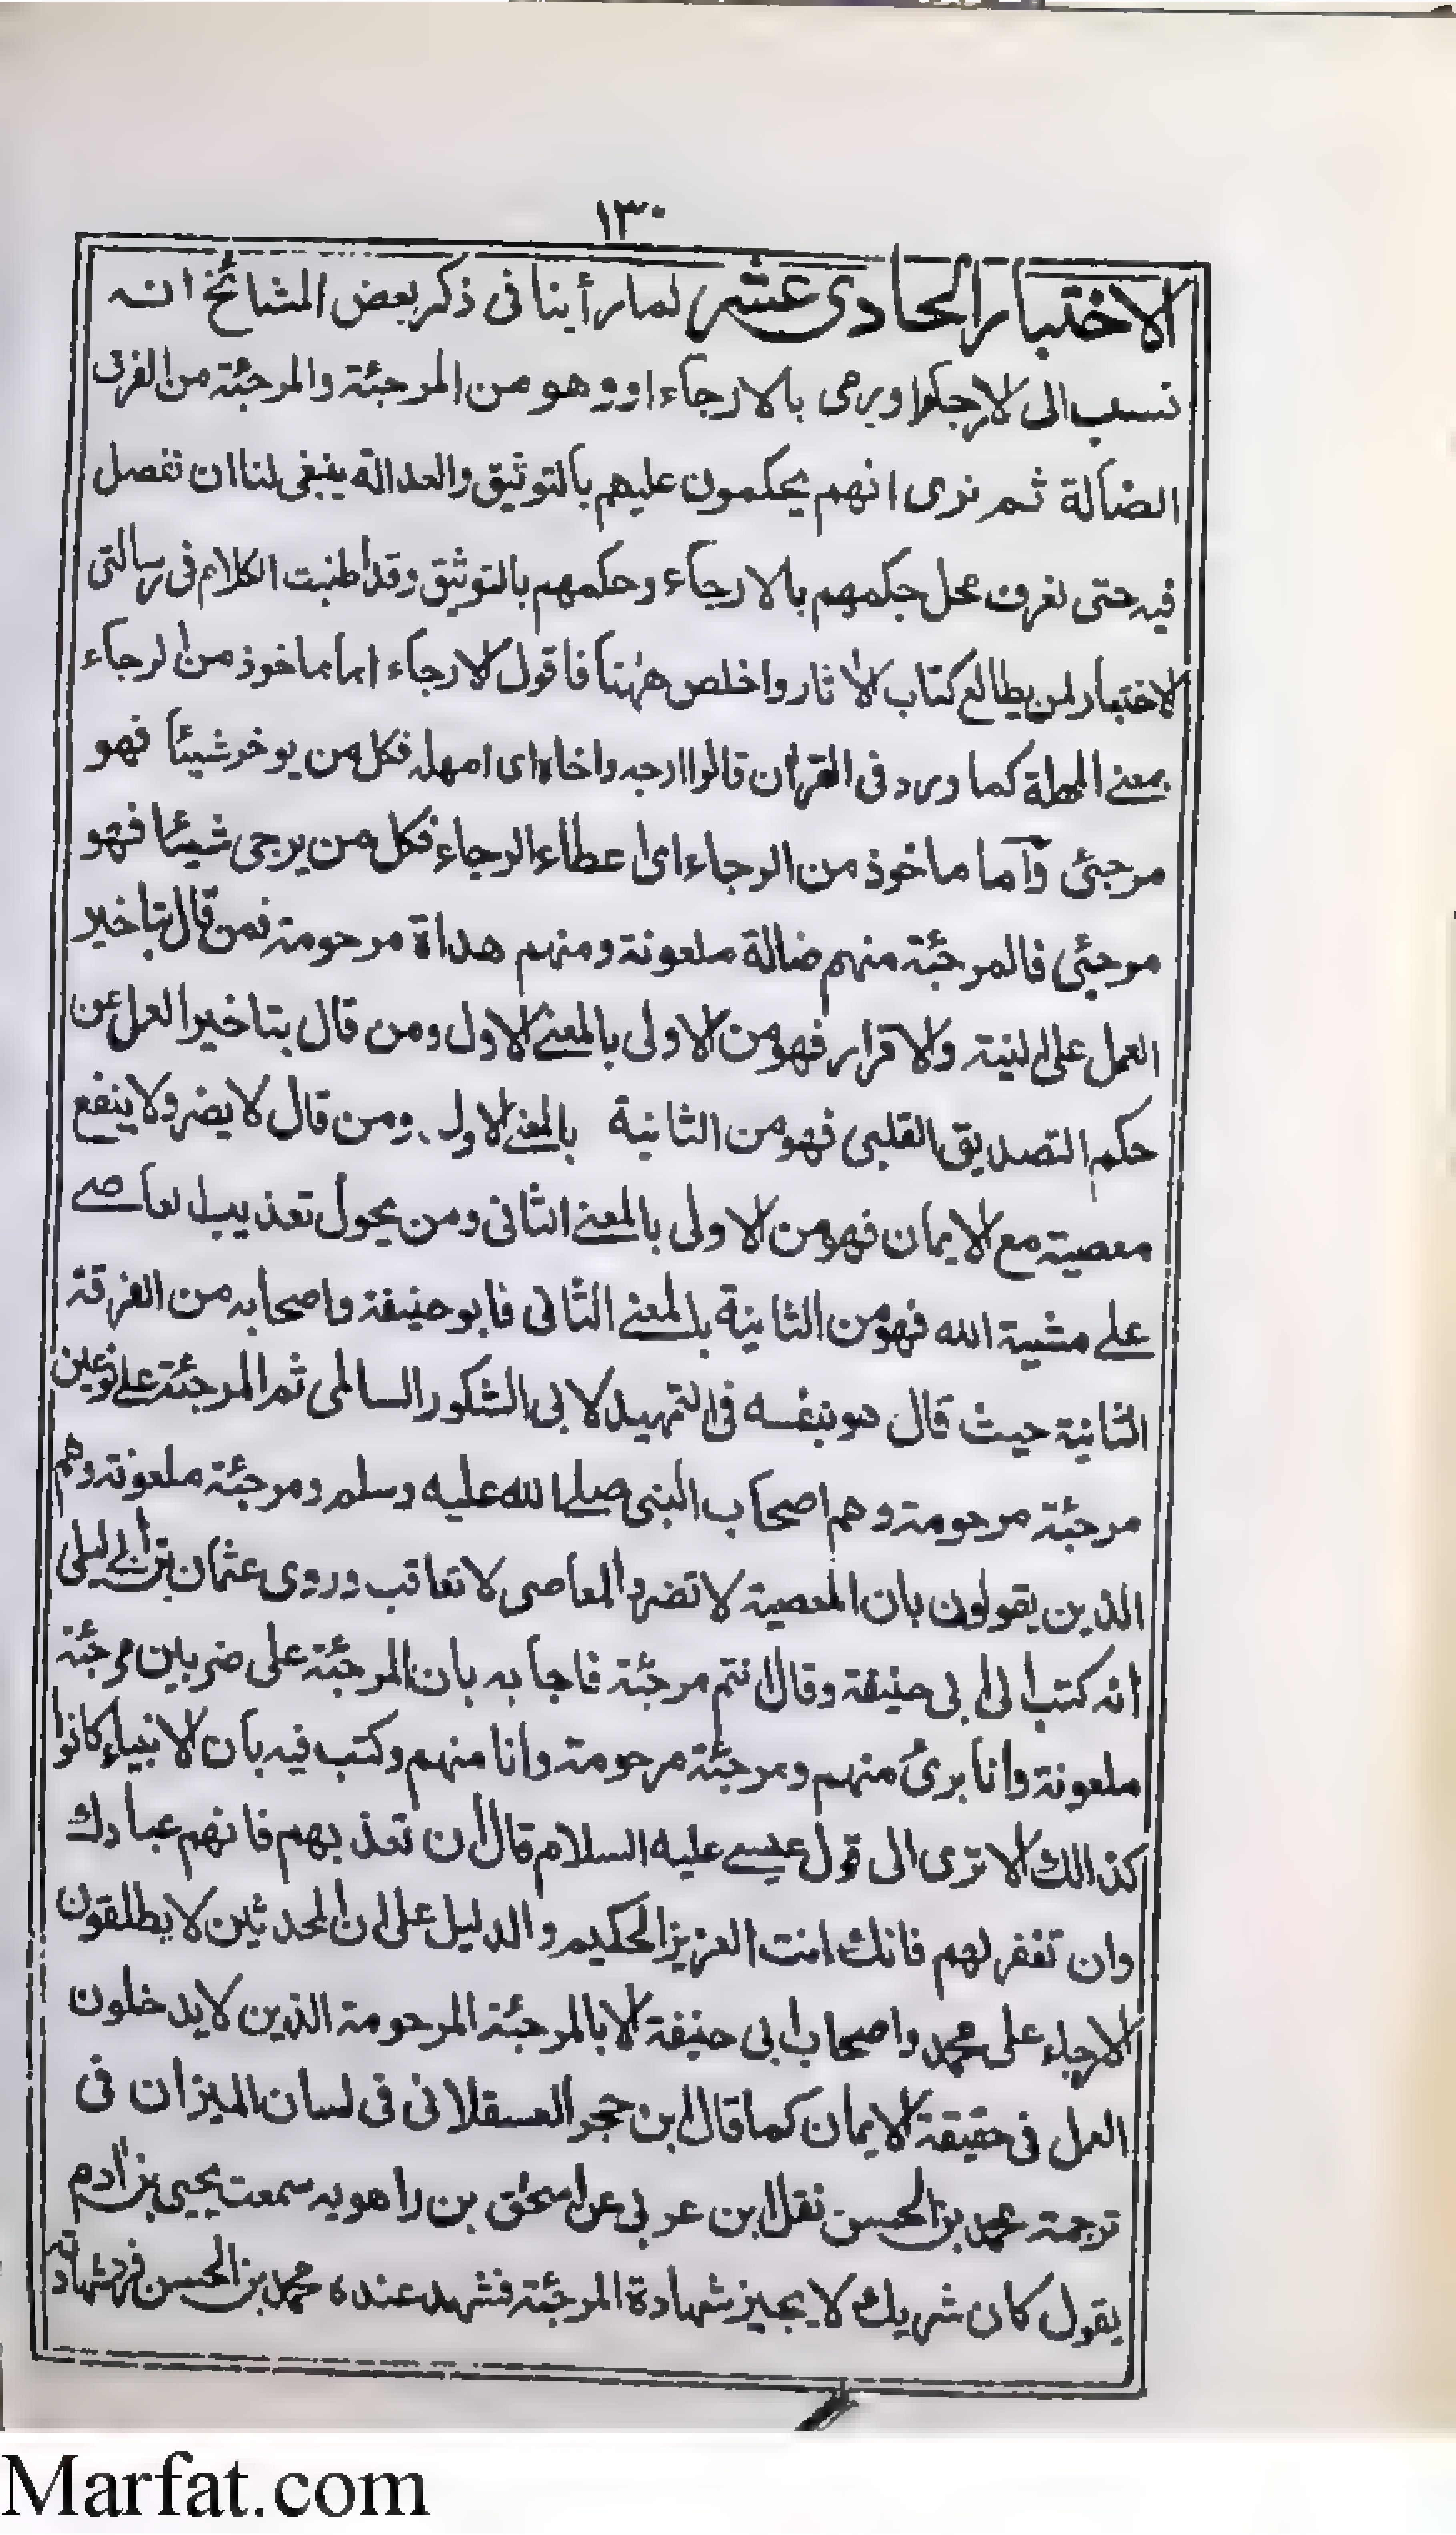 ١٣٠
الاختبار الحادى عشر لما رأينا فى ذكر بعض المشائخ انه
نسب الى الارجاء او يرمى بالارجاء او وهو من المرجئة والمرجئة من الفرق
الضالة ثم نرى انهم يحكمون عليهم بالتوثيق والعدالة ينبغى لنا ان نفصل
فيه حتى نعرف محل حكمهم بالارجاء وحكمهم بالتوثيق وقد اطنبت الكلام فى رسالتى
الاختبار لمن يطالع كتاب الاثار واخلص ههنا فاقول الارجاء اما ماخوذ من الرجاء
بمعنے المهلة كما ورد فى القرأن قالوا ارجه واخاه اى امهله فكل من يوخر شيئا فهو
مرجئى وآما ماخوذ من الرجاء اى اعطاء الرجاء فكل من يرجى شيئا فهو
مرجئى فالمرجئة منهم ضالة ملعونة ومنهم هداة مرحومة فمن قال بتاخير
العمل على النية والاقرار فهو من الاولى بالمعنے الاول ومن قال بتاخير العمل عن
حكم التصديق القلبى فهو من الثانية بالمعنے الاول ومن قال لا يضر ولا ينفع
معصية مع الايمان فهو من الاولى بالمعنے الثانى ومن يحول تعذيب العاصے
علے مشية الله فهو من الثانية بالمعنے الثانى فابو حنيفة واصحابه من الفرقة
الثانية حيث قال هو بنفسه فى التمهيد لابى الشكور السالمى ثم المرجئة علے نوعين
مرجئة مرحومة وهم اصحاب النبى صلے الله عليه وسلم ومرجئة ملعونة وهم
الذين يقولون بان المعصية لا تضر والمعاصى لا تعاقب وروى عثمان بن ابى ليلى
انه كتب الى ابى حنيفة وقال انتم مرجئة فاجابه بان المرجئة على ضربين مرجئة
ملعونة وانا برئ منهم ومرجئة مرحومة وانا منهم وكتب فيه بان الانبياء كانوا
كذالك الا ترى الى قول عيسے عليه السلام قال ان تعذبهم فانهم عبادك
وان تغفر لهم فانك انت العزيز الحكيم والدليل على ان المحدثين لا يطلقون
الارجاء على محمد واصحاب ابى حنيفة الا بالمرجئة المرحومة الذين لا يدخلون
العمل فى حقيقة الايمان كما قال ابن حجر العسقلانى فى لسان الميزان فى
ترجمة محمد بن الحسن نقل ابن عربى عن اسحٰق بن راهويه سمعت يحيى بن ادم
يقول كان شريك لا يجيز شهادة المرجئة فشهد عنده محمد بن الحسن فرد شهادته
Marfat.com